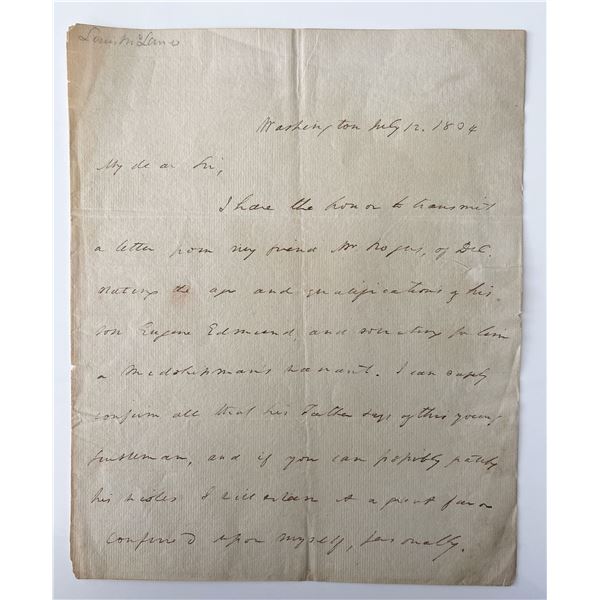 Louis McLane
Washington July 12. 1834
My dear Sir,
I have the honor to transmit
a letter from my friend Mr. Rogers, of Del.
stating the age and qualifications of his
son Eugene Edmund, and soliciting for him
a Midshipman's warrant. I can safely
confirm all that his Father says of this young
gentleman, and if you can possibly gratify
his wishes I will esteem it a great favor
conferred upon myself, personally.